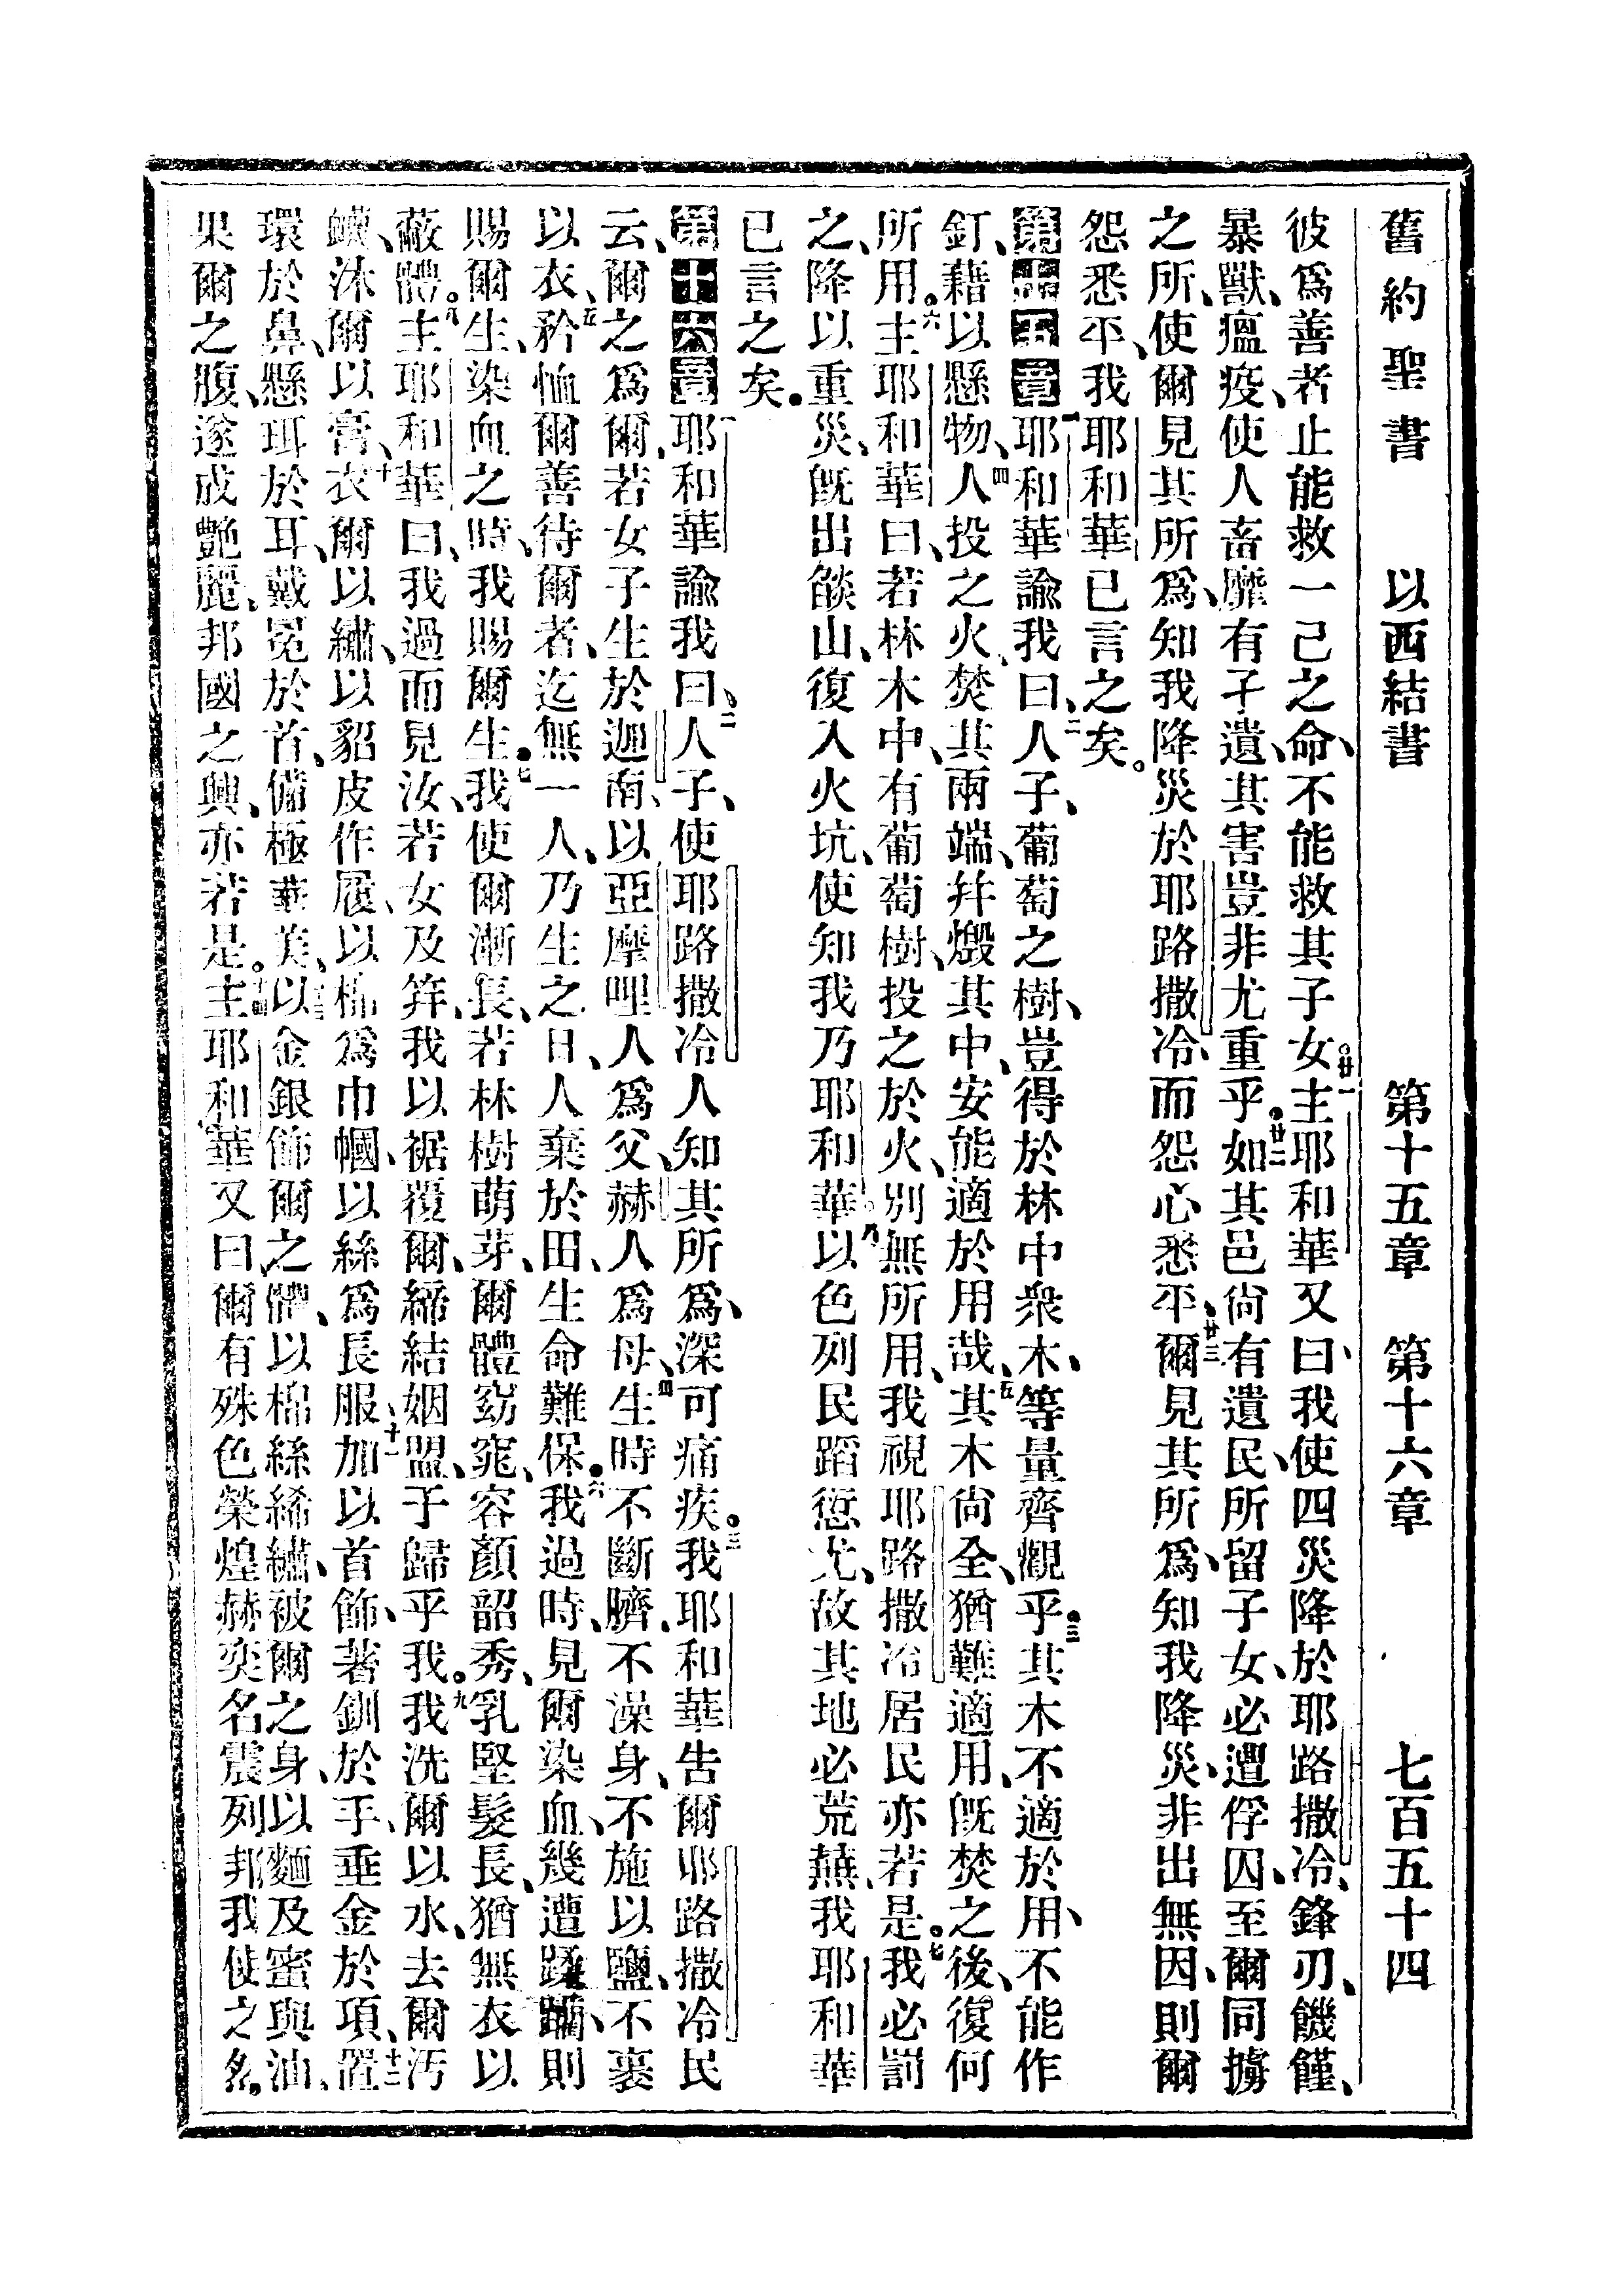 舊約聖書 以西結書 第十五章 第十六章 七百五十四
彼爲善者止能救一己之命、不能救其子女。廿一主耶和華又曰、我使四災降於耶路撒冷、鋒刃、饑饉、
暴獸、瘟疫、使人畜靡有孑遺、其害豈非尤重乎。廿二如其邑尙有遺民、所留子女、必遭俘囚、至爾同擄
之所、使爾見其所爲、知我降災於耶路撒冷、而怨心悉平、廿三爾見其所爲、知我降災、非出無因、則爾
怨悉平、我耶和華已言之矣。
第十五章 一耶和華諭我曰、二人子、葡萄之樹、豈得於林中衆木、等量齊觀乎。三其木不適於用、不能作
釘、藉以懸物、四人投之火、焚其兩端、幷燬其中、安能適於用哉、五其木尙全、猶難適用、旣焚之後、復何
所用。六主耶和華曰、若林木中、有葡萄樹、投之於火、別無所用、我視耶路撒冷居民亦若是。七我必罰
之、降以重災、旣出燄山、復入火坑、使知我乃耶和華。八以色列民蹈愆尤、故其地必荒蕪、我耶和華
已言之矣。
第十六章 一耶和華諭我曰、二人子、使耶路撒冷人知其所爲、深可痛疾。三我耶和華告爾耶路撒冷民
云、爾之爲爾、若女子生於迦南、以亞摩哩人爲父、赫人爲母、四生時不斷臍、不澡身、不施以鹽、不裹
以衣、五矜恤爾善待爾者、迄無一人、乃生之日、人棄於田、生命難保。六我過時、見爾染血、幾遭蹂躪、則
賜爾生、染血之時、我賜爾生。七我使爾漸長、若林樹萌芽、爾體窈窕、容顏韶秀、乳堅髮長、猶無衣以
蔽體。八主耶和華曰、我過而見汝、若女及笄、我以裾覆爾、締結姻盟、于歸乎我。九我洗爾以水、去爾汚
衊、沐爾以膏、十衣爾以繡、以貂皮作履、以棉爲巾幗、以絲爲長服、十一加以首飾、著釧於手、垂金於項、十二置
環於鼻、懸珥於耳、戴冕於首、備極華美、十三以金銀飾爾之體、以棉絲絺繡、被爾之身、以麵及蜜與油、
果爾之腹、遂成艶麗、邦國之興、亦若是。十四主耶和華又曰、爾有殊色、榮煌赫奕、名震列邦、我使之然。